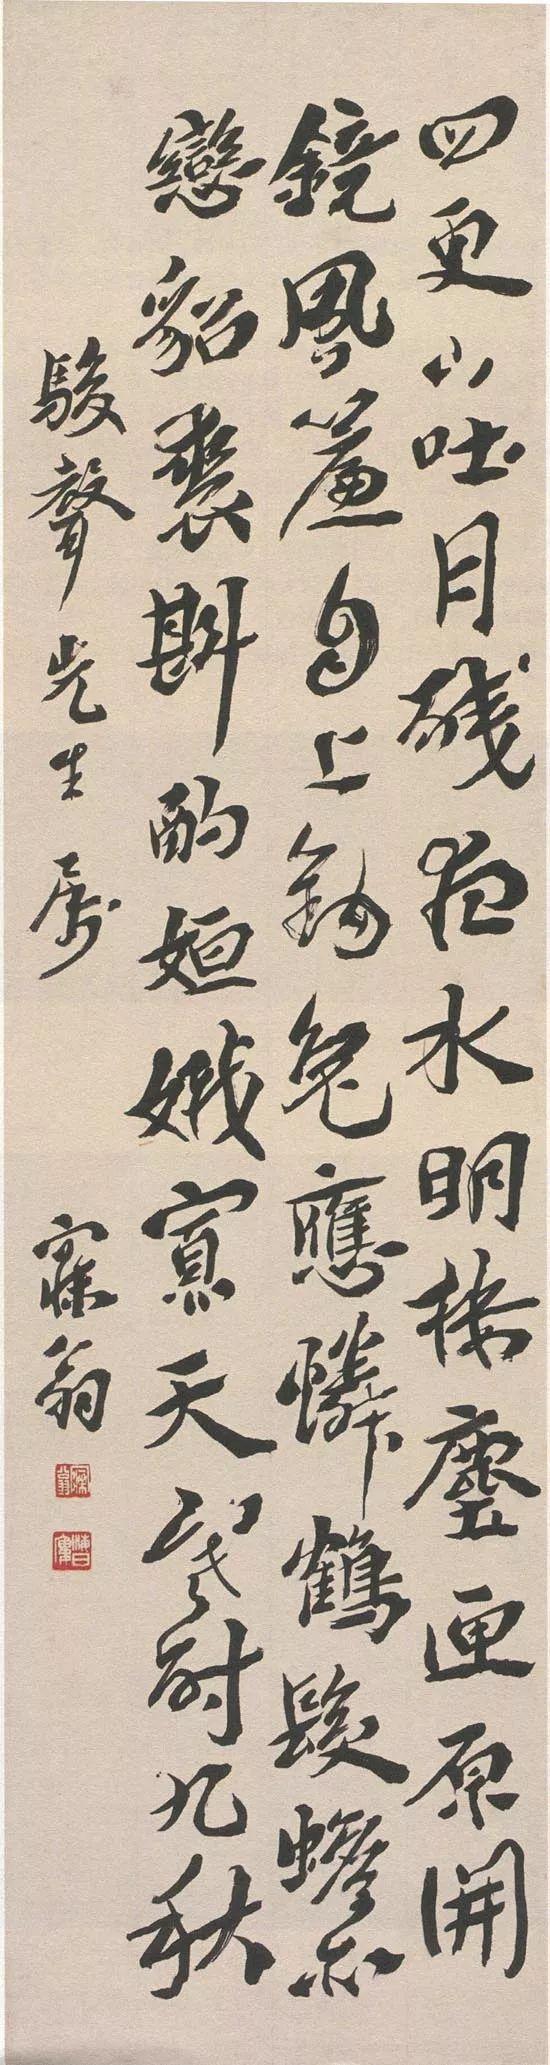 四更山吐月殘夜水明樓塵匣原開
鏡風簾自上鈎兔應憐鶴髮蟾亦
戀貂裘斟酌姮娥寡天寒耐九秋
駿聲先生屬
寐翁